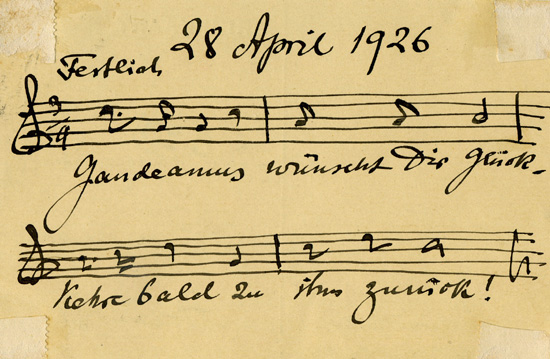 28 April 1926
Festlich
3/4
Gaudeamus wünscht Dir Glück-
Kehre bald zu ihm zurück!